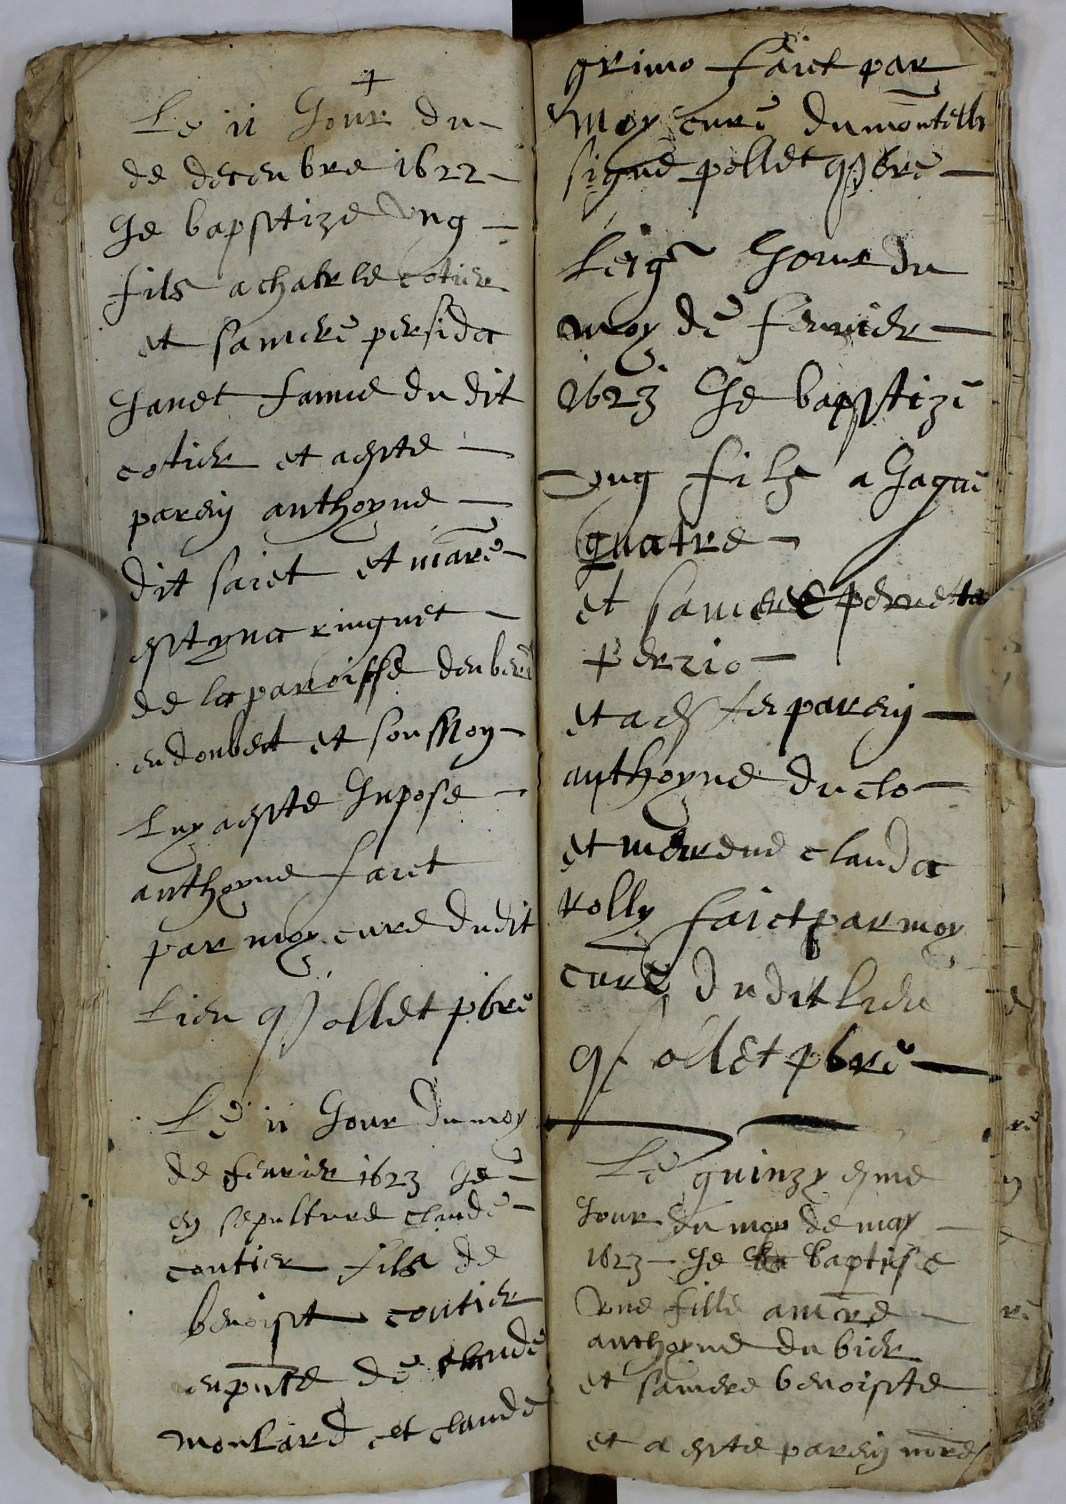 Le 11 Jour du
de decenbre 1622
Je bapstize ung
fils a charle cotier
et samere persida
Janet famme du dit
cotier et a este
parain anthoyne
dit saict et mare
estyna ringuet
de la paroisse
et sous Moy
Luy a este Inpose
anthoyne faict
par moy cure dudit
Lieu pollet pbre
Le 11 Jour du moy
de fevrier 1623 Je
en sepulture claude
coutier fils de
benoist coutier
en pnte de claude
moulard et claude
grimo faict par
Moy cure du
signe pollet pbre
Jour du
moy de fevrier
1623 Je bapstize
ung filz a Jaque
quatre
et samere perrette
perrio
et a este parain
anthoyne duclo
et mereine clauda
rolly faict par moy
cure dudit Lieu
pollet pbre
Le quinzyesme
Jour du moy de may
1623 Je baptise
Une fille a
anthoyne du bier
et samere benoiste
et a este parain